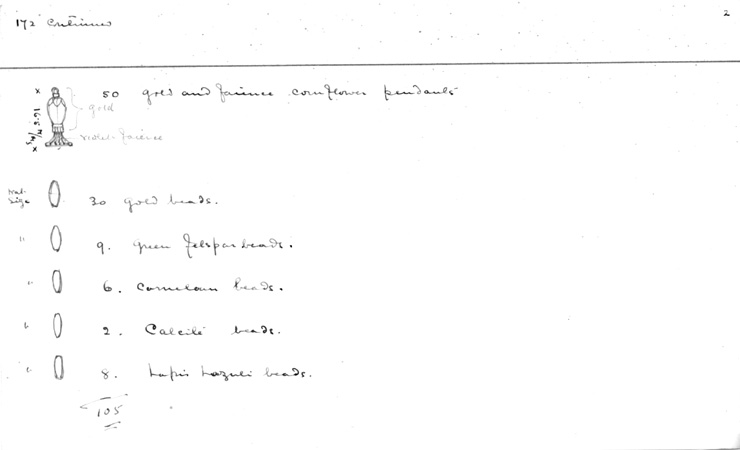 172 Continued
2
50 gold and faience cornflower pendants
gold
violet faience
Nat. Size
30 gold beads.
" 9. green felspar beads.
" 6. Cornelian beads.
" 2. Calcite beads.
" 8. Lapis Lazuli beads.
105